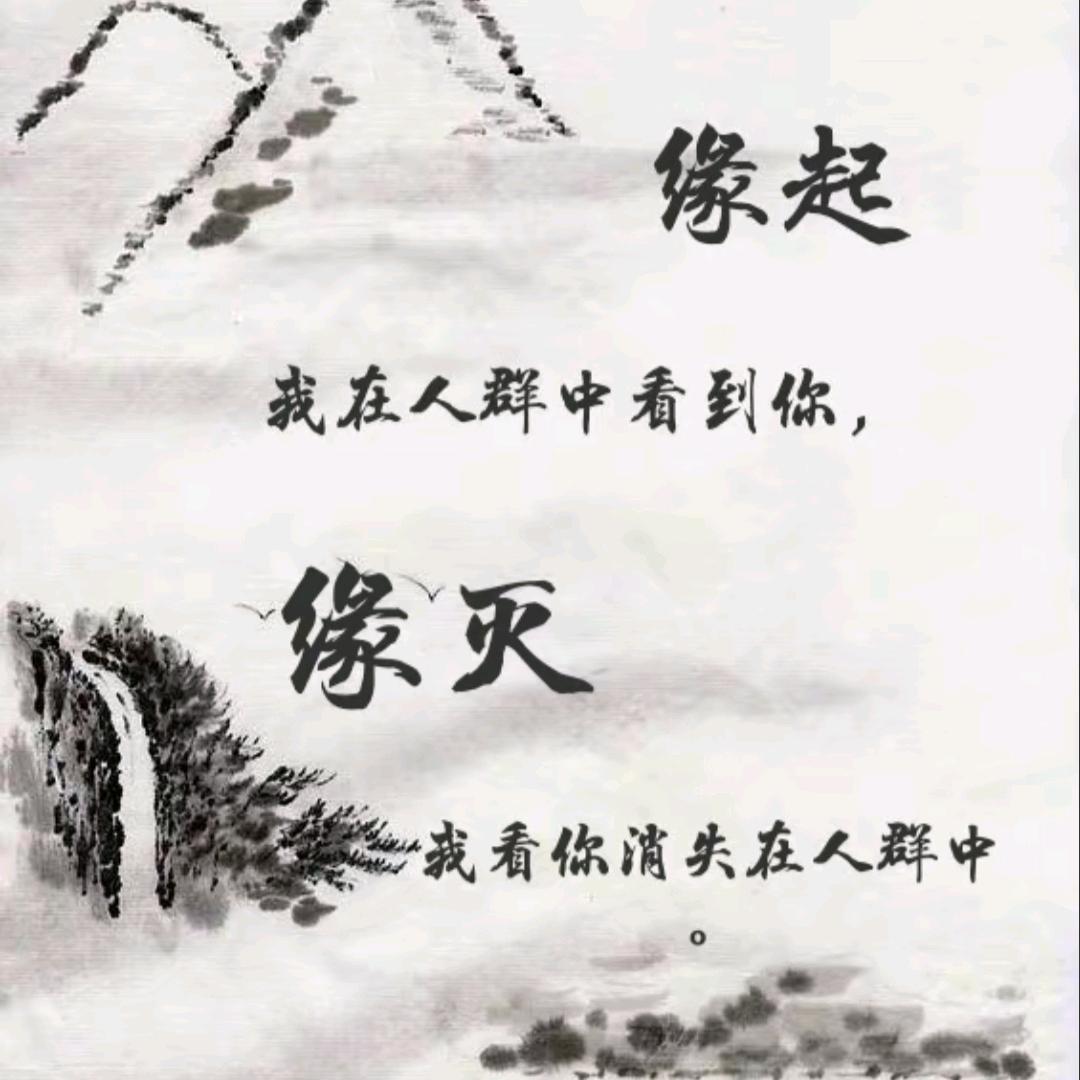 缘起
我在人群中看到你，
缘灭
我看你消失在人群中
。